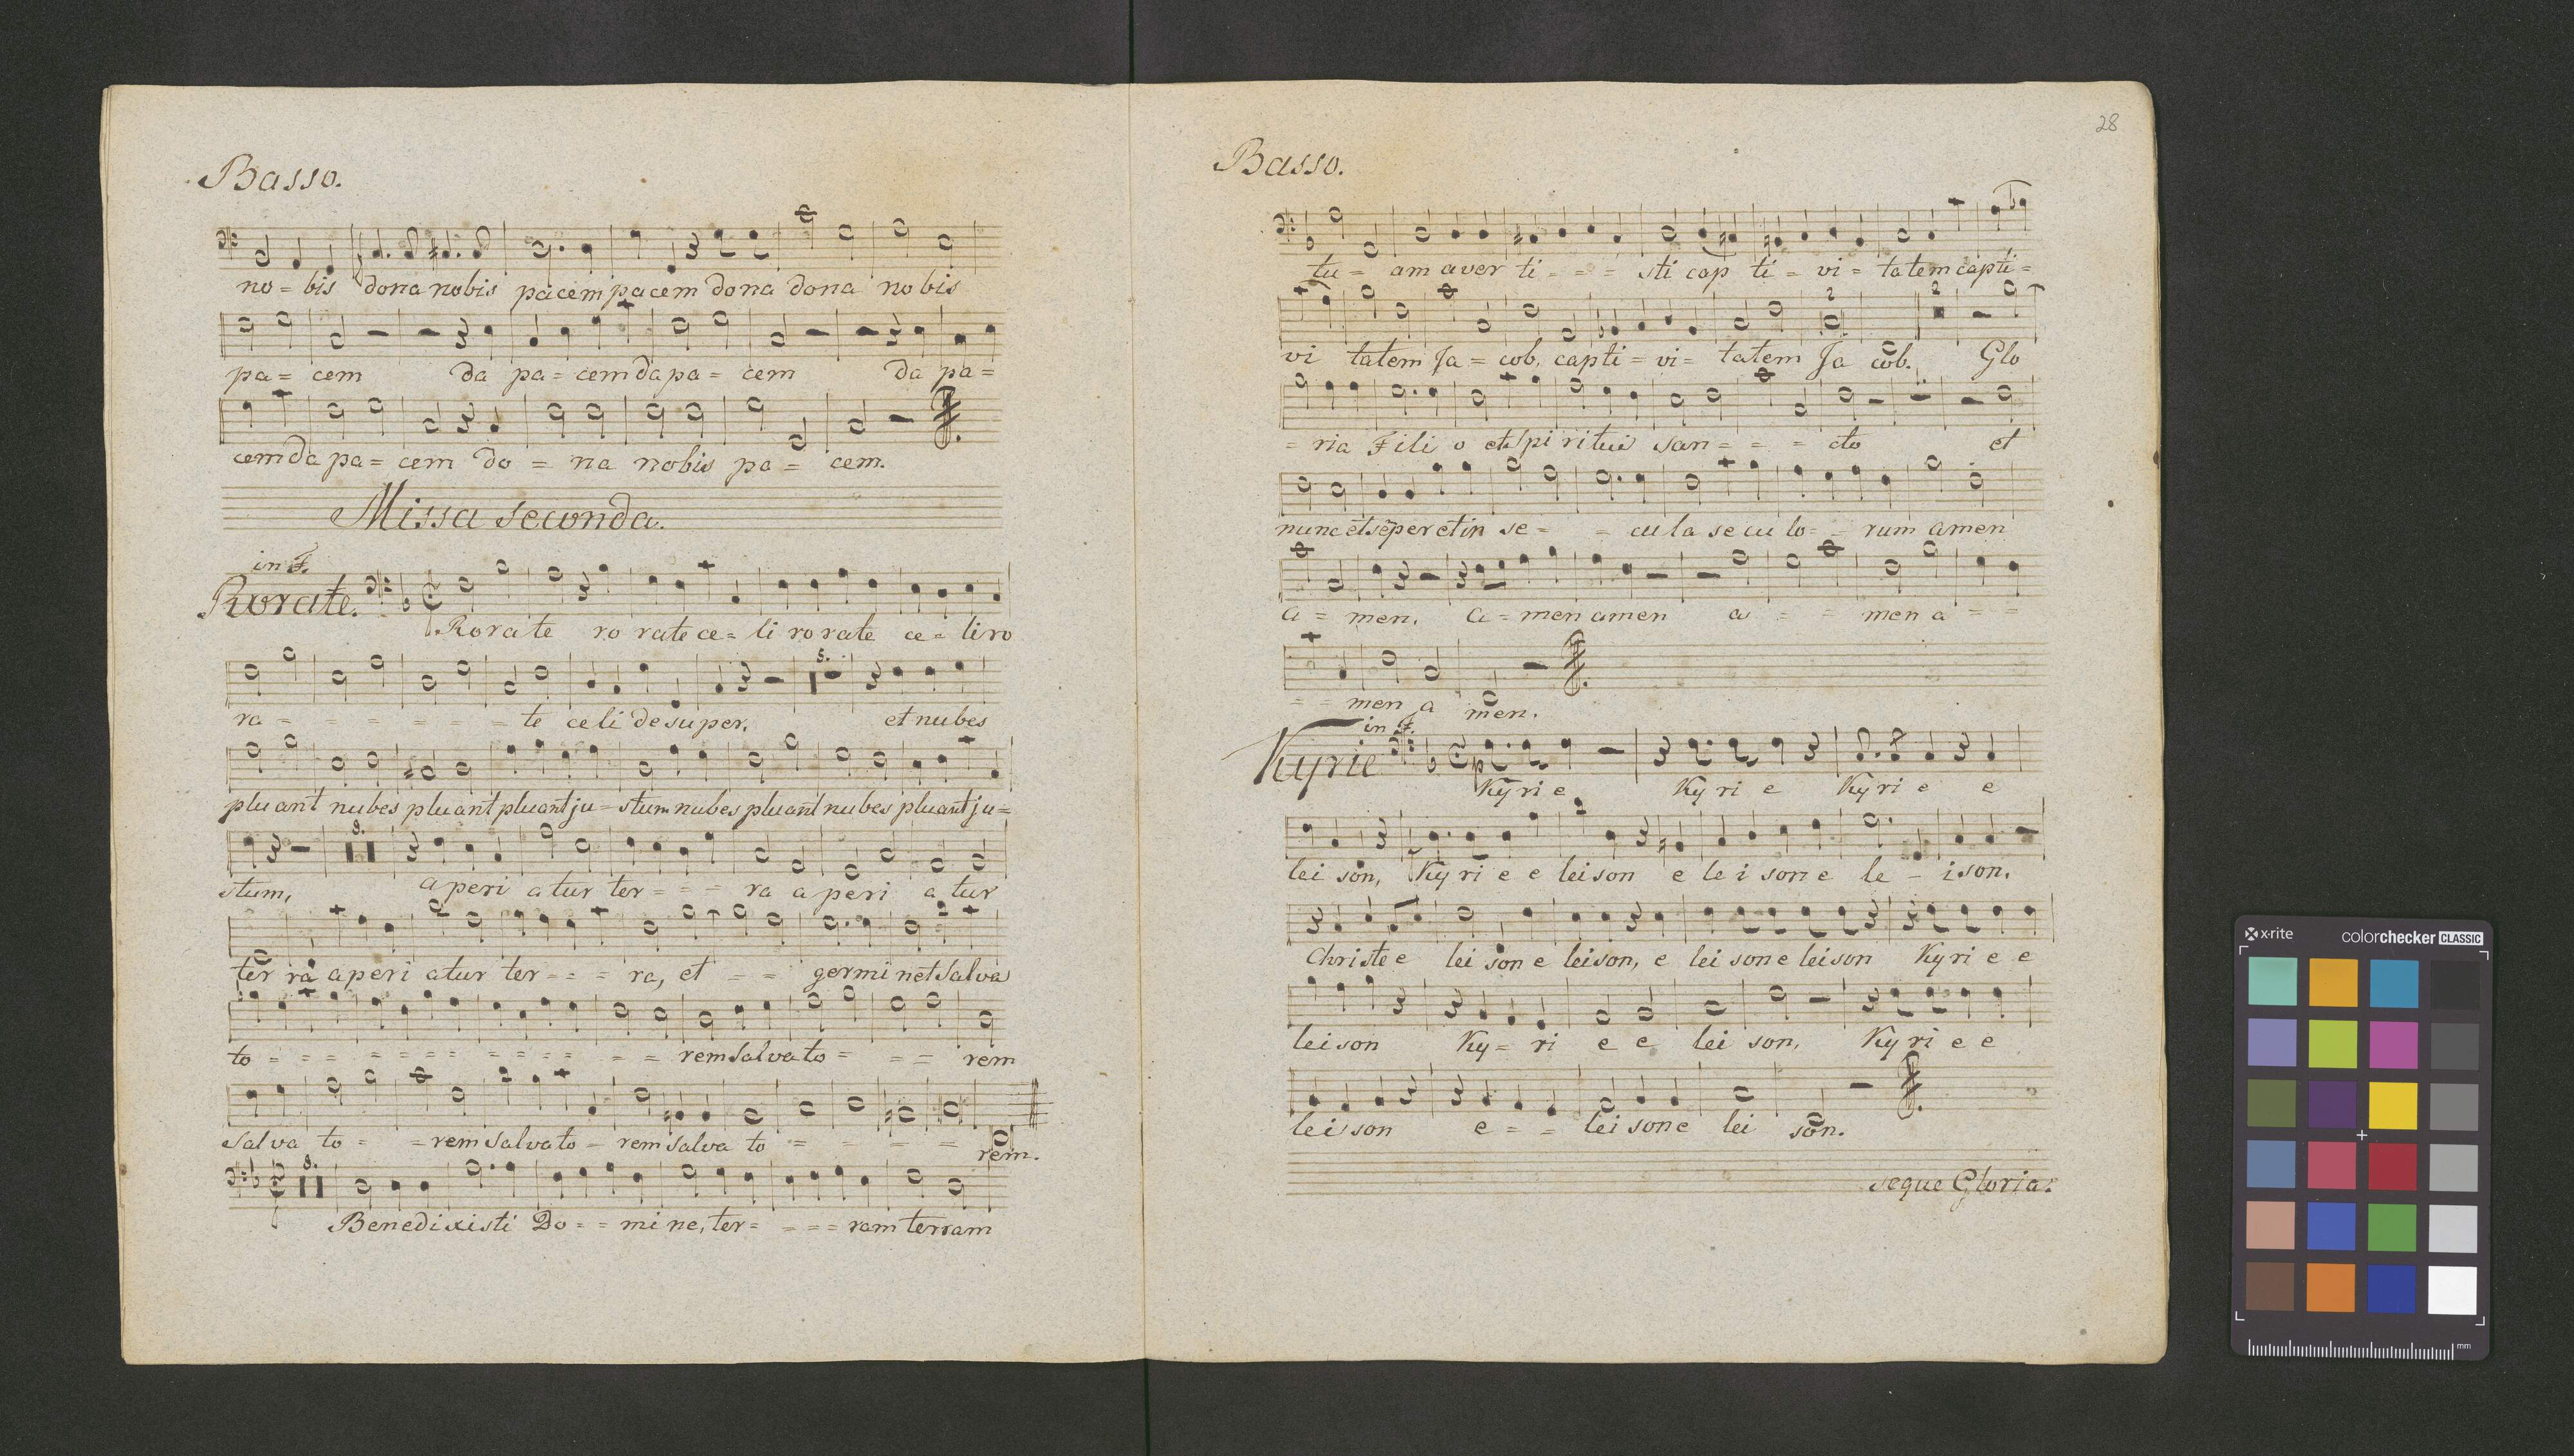 Basso.
no = bis dona nobis pacem pacem dona dona nobis
pa = cem da pa = cem da pa = cem da pa =
cem da pa = cem do = na nobis pa = cem.
Missa seconda.
in F.
Rorate.
Rorate ro rate ce = li ro rate ce = li ro
ra = = = = = = te celi desuper. et nubes
5.
pluant nubes pluant pluant ju = stum nubes pluant nubes pluant ju =
stum, aperi atur ter = = = ra aperi atur
8.
ter ra aperi atur ter = = = ra, et = = germinet salva
to = = = = = = = = = = = = = rem salva to = = = rem
salva to = = rem salva to = rem salva to = = = = =
rem.
8.
Benedixisti Do = = mine, ter = = = = ram terram
28
Basso.
tu = am aver ti = = = sti cap ti = vi = tatem capti =
2 2
vi tatem Ja = cob, capti = vi = tatem Ja cob. Glo
= ria Fili o et Spiritui san = = = cto et
nunc et sēper et in se = = cu la se cu lo = = rum amen
a = men. a = men amen a = = men a = =
= = men a men.
in F.
Kyrie
p
Kyrie Kyrie Kyrie e
lei son, Kyri e e leison e le i son e le - ison.
Christe e lei son e leison, e lei son e leison Kyri e e
leison Ky = ri e e lei son, Kyri e e
leison e = = lei son e lei son.
seque Gloria:
x-rite
colorchecker CLASSIC
mm